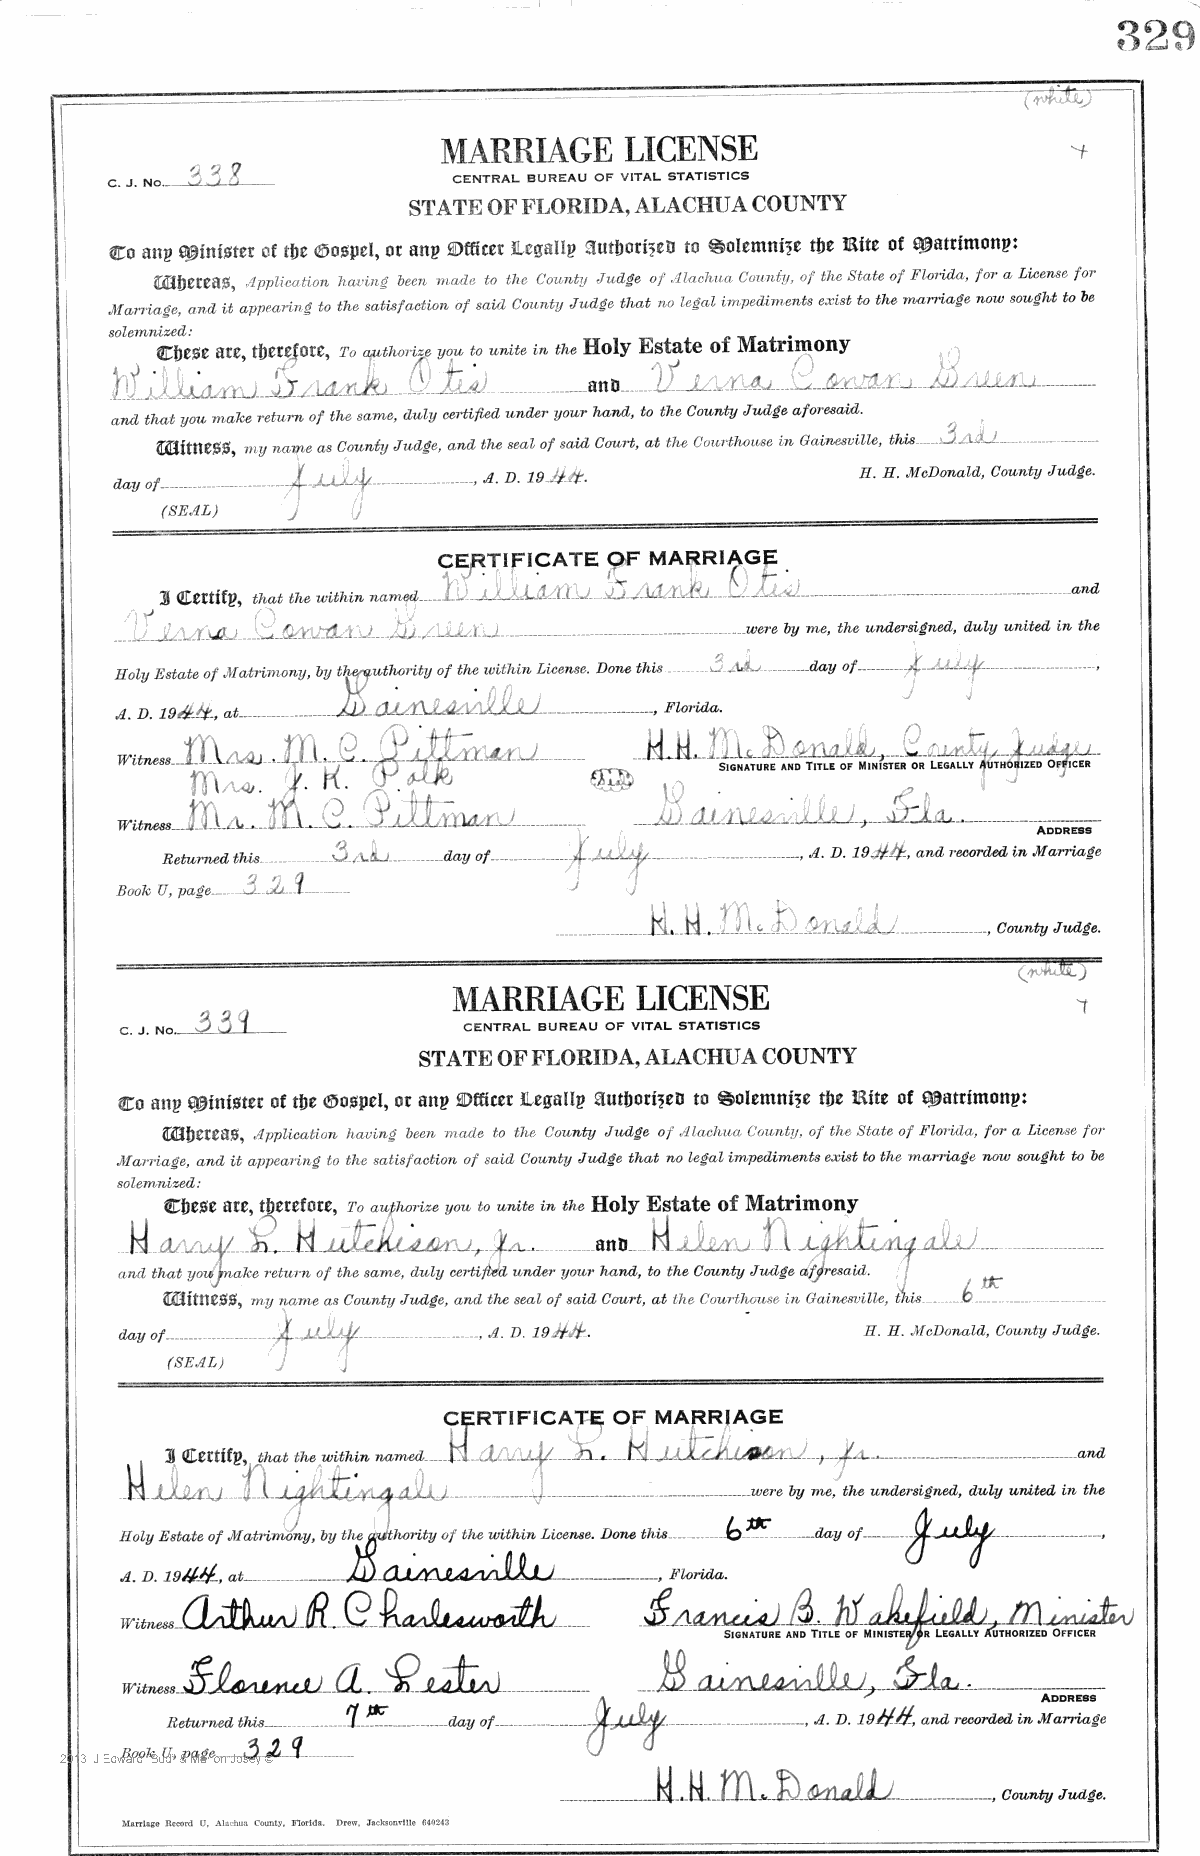 329
(white)
MARRIAGE LICENSE
C. J. No. 338
CENTRAL BUREAU OF VITAL STATISTICS
STATE OF FLORIDA, ALACHUA COUNTY
To any Minister of the Gospel, or any Officer Legally Authorized to Solemnize the Rite of Matrimony:
Whereas, Application having been made to the County Judge of Alachua County, of the State of Florida, for a License for
Marriage, and it appearing to the satisfaction of said County Judge that no legal impediments exist to the marriage now sought to be
solemnized:
These are, therefore, To authorize you to unite in the Holy Estate of Matrimony
William Frank Otis and Verna Cowan Green
and that you make return of the same, duly certified under your hand, to the County Judge aforesaid.
Witness, my name as County Judge, and the seal of said Court, at the Courthouse in Gainesville, this 3rd
day of July, A. D. 1944. H. H. McDonald, County Judge.
(SEAL)
CERTIFICATE OF MARRIAGE
I Certify, that the within named William Frank Otis and
Verna Cowan Green were by me, the undersigned, duly united in the
Holy Estate of Matrimony, by the authority of the within License. Done this 3rd day of July,
A. D. 1944, at Gainesville, Florida.
Witness Mrs. M. C. Pittman H. H. McDonald, County Judge
SIGNATURE AND TITLE OF MINISTER OR LEGALLY AUTHORIZED OFFICER
Mrs. J. K. Polk
Witness Mr. M. C. Pittman Gainesville, Fla.
ADDRESS
Returned this 3rd day of July, A. D. 1944, and recorded in Marriage
Book U, page 329
H. H. McDonald, County Judge.
(white)
MARRIAGE LICENSE
C. J. No. 339
CENTRAL BUREAU OF VITAL STATISTICS
STATE OF FLORIDA, ALACHUA COUNTY
To any Minister of the Gospel, or any Officer Legally Authorized to Solemnize the Rite of Matrimony:
Whereas, Application having been made to the County Judge of Alachua County, of the State of Florida, for a License for
Marriage, and it appearing to the satisfaction of said County Judge that no legal impediments exist to the marriage now sought to be
solemnized:
These are, therefore, To authorize you to unite in the Holy Estate of Matrimony
Harry L. Hutchison, Jr. and Helen Nightingale
and that you make return of the same, duly certified under your hand, to the County Judge aforesaid.
Witness, my name as County Judge, and the seal of said Court, at the Courthouse in Gainesville, this 6th
day of July, A. D. 1944. H. H. McDonald, County Judge.
(SEAL)
CERTIFICATE OF MARRIAGE
I Certify, that the within named Harry L. Hutchison, Jr. and
Helen Nightingale were by me, the undersigned, duly united in the
Holy Estate of Matrimony, by the authority of the within License. Done this 6th day of July,
A. D. 1944, at Gainesville, Florida.
Witness Arthur R. Charlesworth Francis B. Wakefield, Minister
SIGNATURE AND TITLE OF MINISTER OR LEGALLY AUTHORIZED OFFICER
Witness Florence A. Lester Gainesville, Fla.
ADDRESS
Returned this 7th day of July, A. D. 1944, and recorded in Marriage
Book U, page 329
H. H. McDonald, County Judge.
Marriage Record U, Alachua County, Florida. Drew, Jacksonville 640243